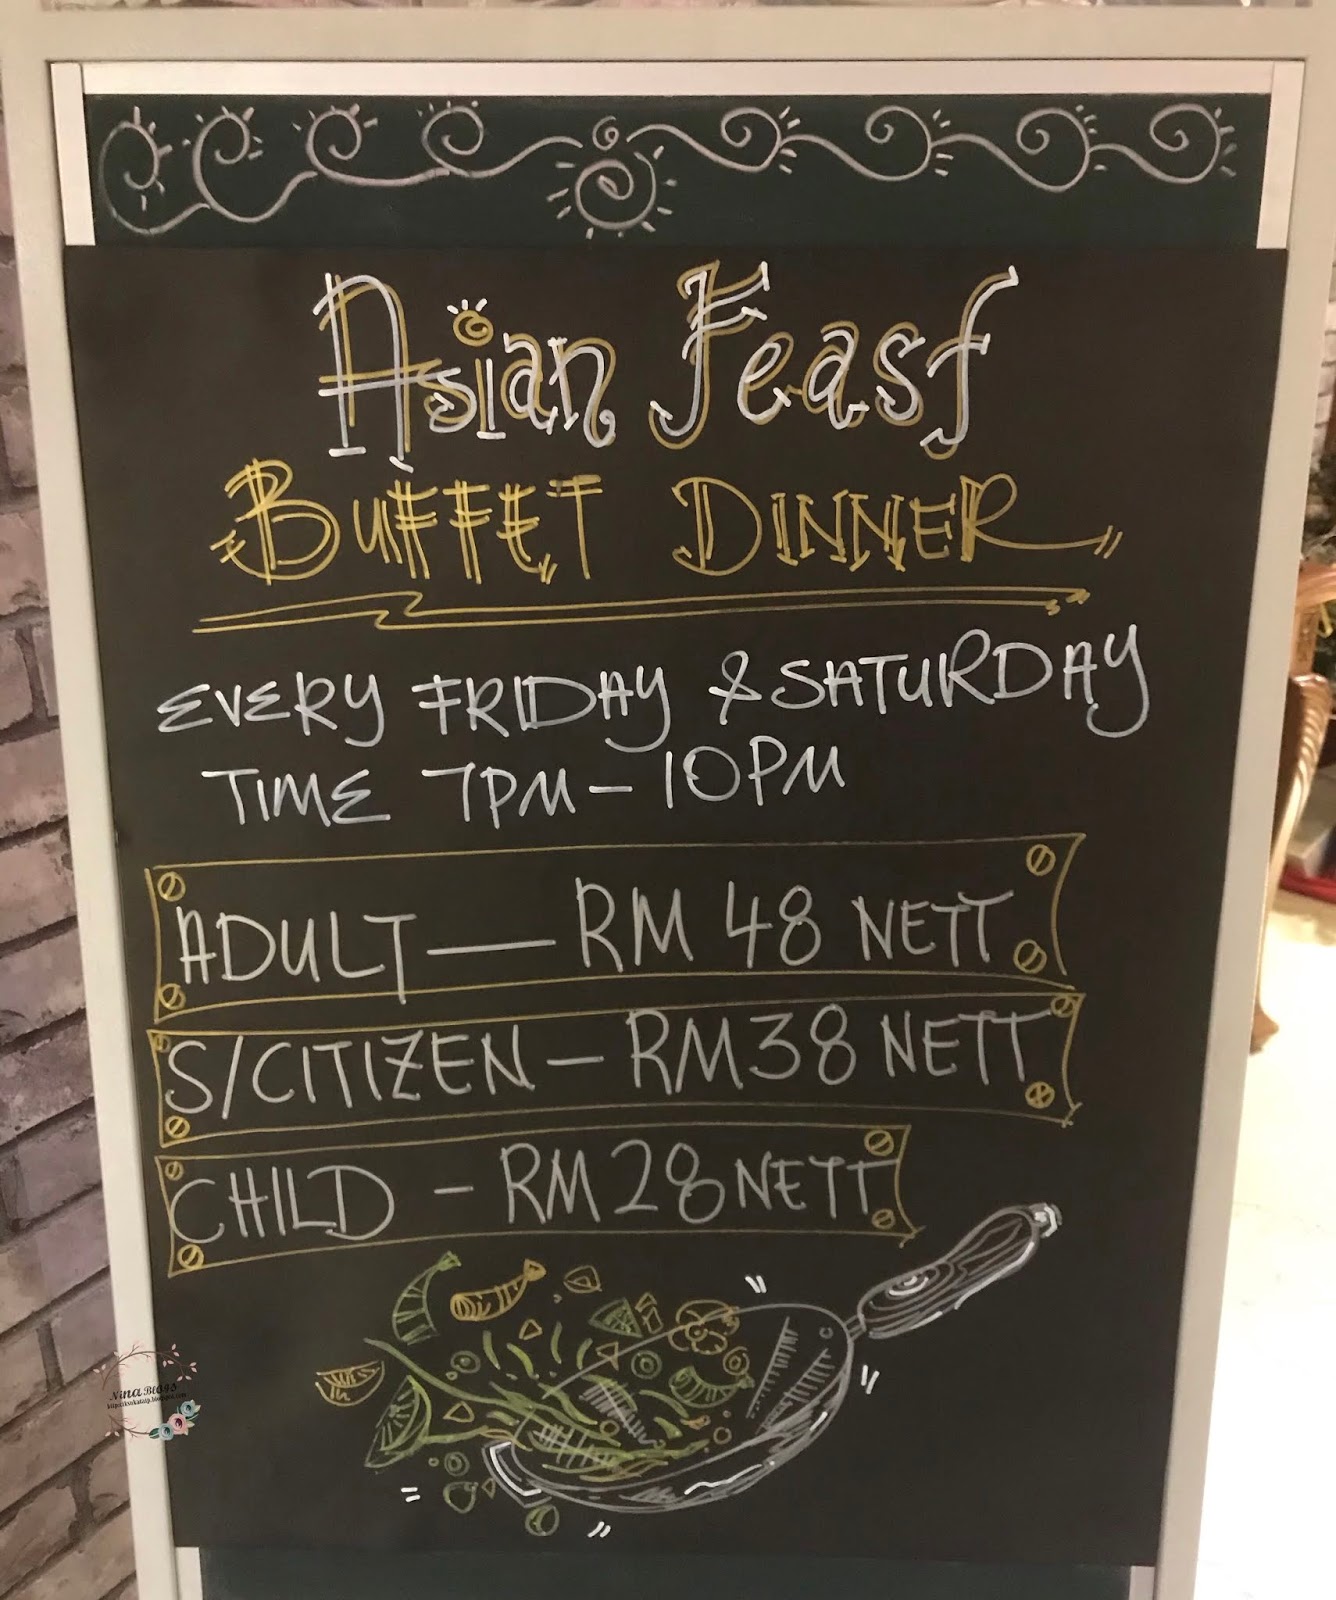 Asian Feast
BUFFET DINNER
EVERY FRIDAY & SATURDAY
TIME 7PM - 10PM
ADULT — RM 48 NETT
S/CITIZEN — RM38 NETT
CHILD - RM28 NETT
Nina Blogs